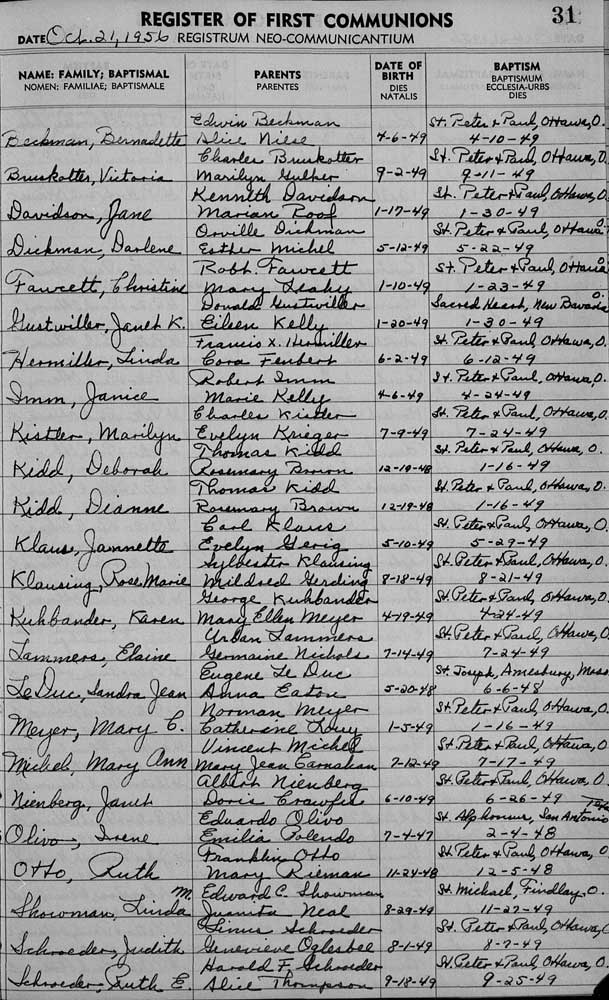 REGISTER OF FIRST COMMUNIONS 31
DATE Oct. 21, 1956 REGISTRUM NEO-COMMUNICANTIUM
NAME: FAMILY; BAPTISMAL PARENTS DATE OF BIRTH BAPTISM
NOMEN: FAMILIAE; BAPTISMALE PARENTES DIES NATALIS BAPTISMUM ECCLESIA-URBS DIES
Edwin Beckman St. Peter & Paul, Ottawa, O.
Beckman, Bernadette Alice Niese 4-6-49 4-10-49
Charles Bruskotter St. Peter & Paul, Ottawa, O.
Bruskotter, Victoria Marilyn 9-2-49 9-11-49
Kennith Davidson St. Peter & Paul, Ottawa, O.
Davidson, Jane Marian Roof 1-17-49 1-30-49
Orville Dickman St. Peter & Paul, Ottawa O.
Dickman, Darlene Esther Michel 5-12-49 5-22-49
Robt. Fawcett St. Peter & Paul, Ottawa O.
Fawcett, Christine Mary Leahy 1-10-49 1-23-49
Donald Gustwiller Sacred Heart, New Bavaria O.
Gustwiller, Janet K. Eileen Kelly 1-20-49 1-30-49
Francis X. Hermiller St. Peter & Paul, Ottawa, O.
Hermiller, Linda Cora Fenbert 6-2-49 6-12-49
Robert Imm St. Peter & Paul, Ottawa, O.
Imm, Janice Marie Kelly 4-6-49 4-24-49
Charles Kistler St. Peter & Paul, Ottawa, O.
Kistler, Marilyn Evelyn Krieger 7-9-49 7-24-49
Thomas Kidd St. Peter & Paul, Ottawa, O.
Kidd, Deborah Rosemary Brown 12-19-48 1-16-49
Thomas Kidd St. Peter & Paul, Ottawa, O.
Kidd, Dianne Rosemary Brown 12-19-48 1-16-49
Carl Klaus St. Peter & Paul, Ottawa, O.
Klaus, Jannette Evelyn Gerig 5-10-49 5-29-49
Sylvester Klausing St. Peter & Paul, Ottawa, O.
Klausing, Rose Marie Mildred Gerding 8-18-49 8-21-49
George Kuhbander St. Peter & Paul, Ottawa, O.
Kuhbander, Karen Mary Ellen Meyer 4-19-49 4-24-49
Urban Lammers St. Peter & Paul, Ottawa, O.
Lammers, Elaine Germaine Nichols 7-14-49 7-24-49
Eugene Le Duc St. Joseph, Amesbury, Mass.
LeDuc, Sandra Jean Anna Eaton 5-20-48 6-6-48
Norman Meyer St. Peter & Paul, Ottawa, O.
Meyer, Mary C. Catherine 1-5-49 1-16-49
Vincent Michel St. Peter & Paul, Ottawa, O
Michel, Mary Ann Mary Jean Carnahan 7-12-49 7-17-49
Albert Nienberg St. Peter & Paul, Ottawa, O.
Nienberg, Janet Doris Crawfis 6-10-49 6-26-49
Eduardo Olivo St. Alphonsus, San Antonio Texas
Olivo, Irene Emilia Polendo 7-4-47 2-4-48
Franklin Otto St. Peter & Paul, Ottawa, O.
Otto, Ruth Mary Rieman 11-24-48 12-5-48
Edward C. Showman St. Michael, Findlay, O.
Showman, Linda M. Juanita Neal 8-29-49 11-27-49
Linus Schroeder St. Peter & Paul, Ottawa, O
Schroeder, Judith Genevieve Oglesbee 8-1-49 8-7-49
Harold F. Schroeder St. Peter & Paul, Ottawa, O.
Schroeder, Ruth E. Alice Thompson 9-18-49 9-25-49